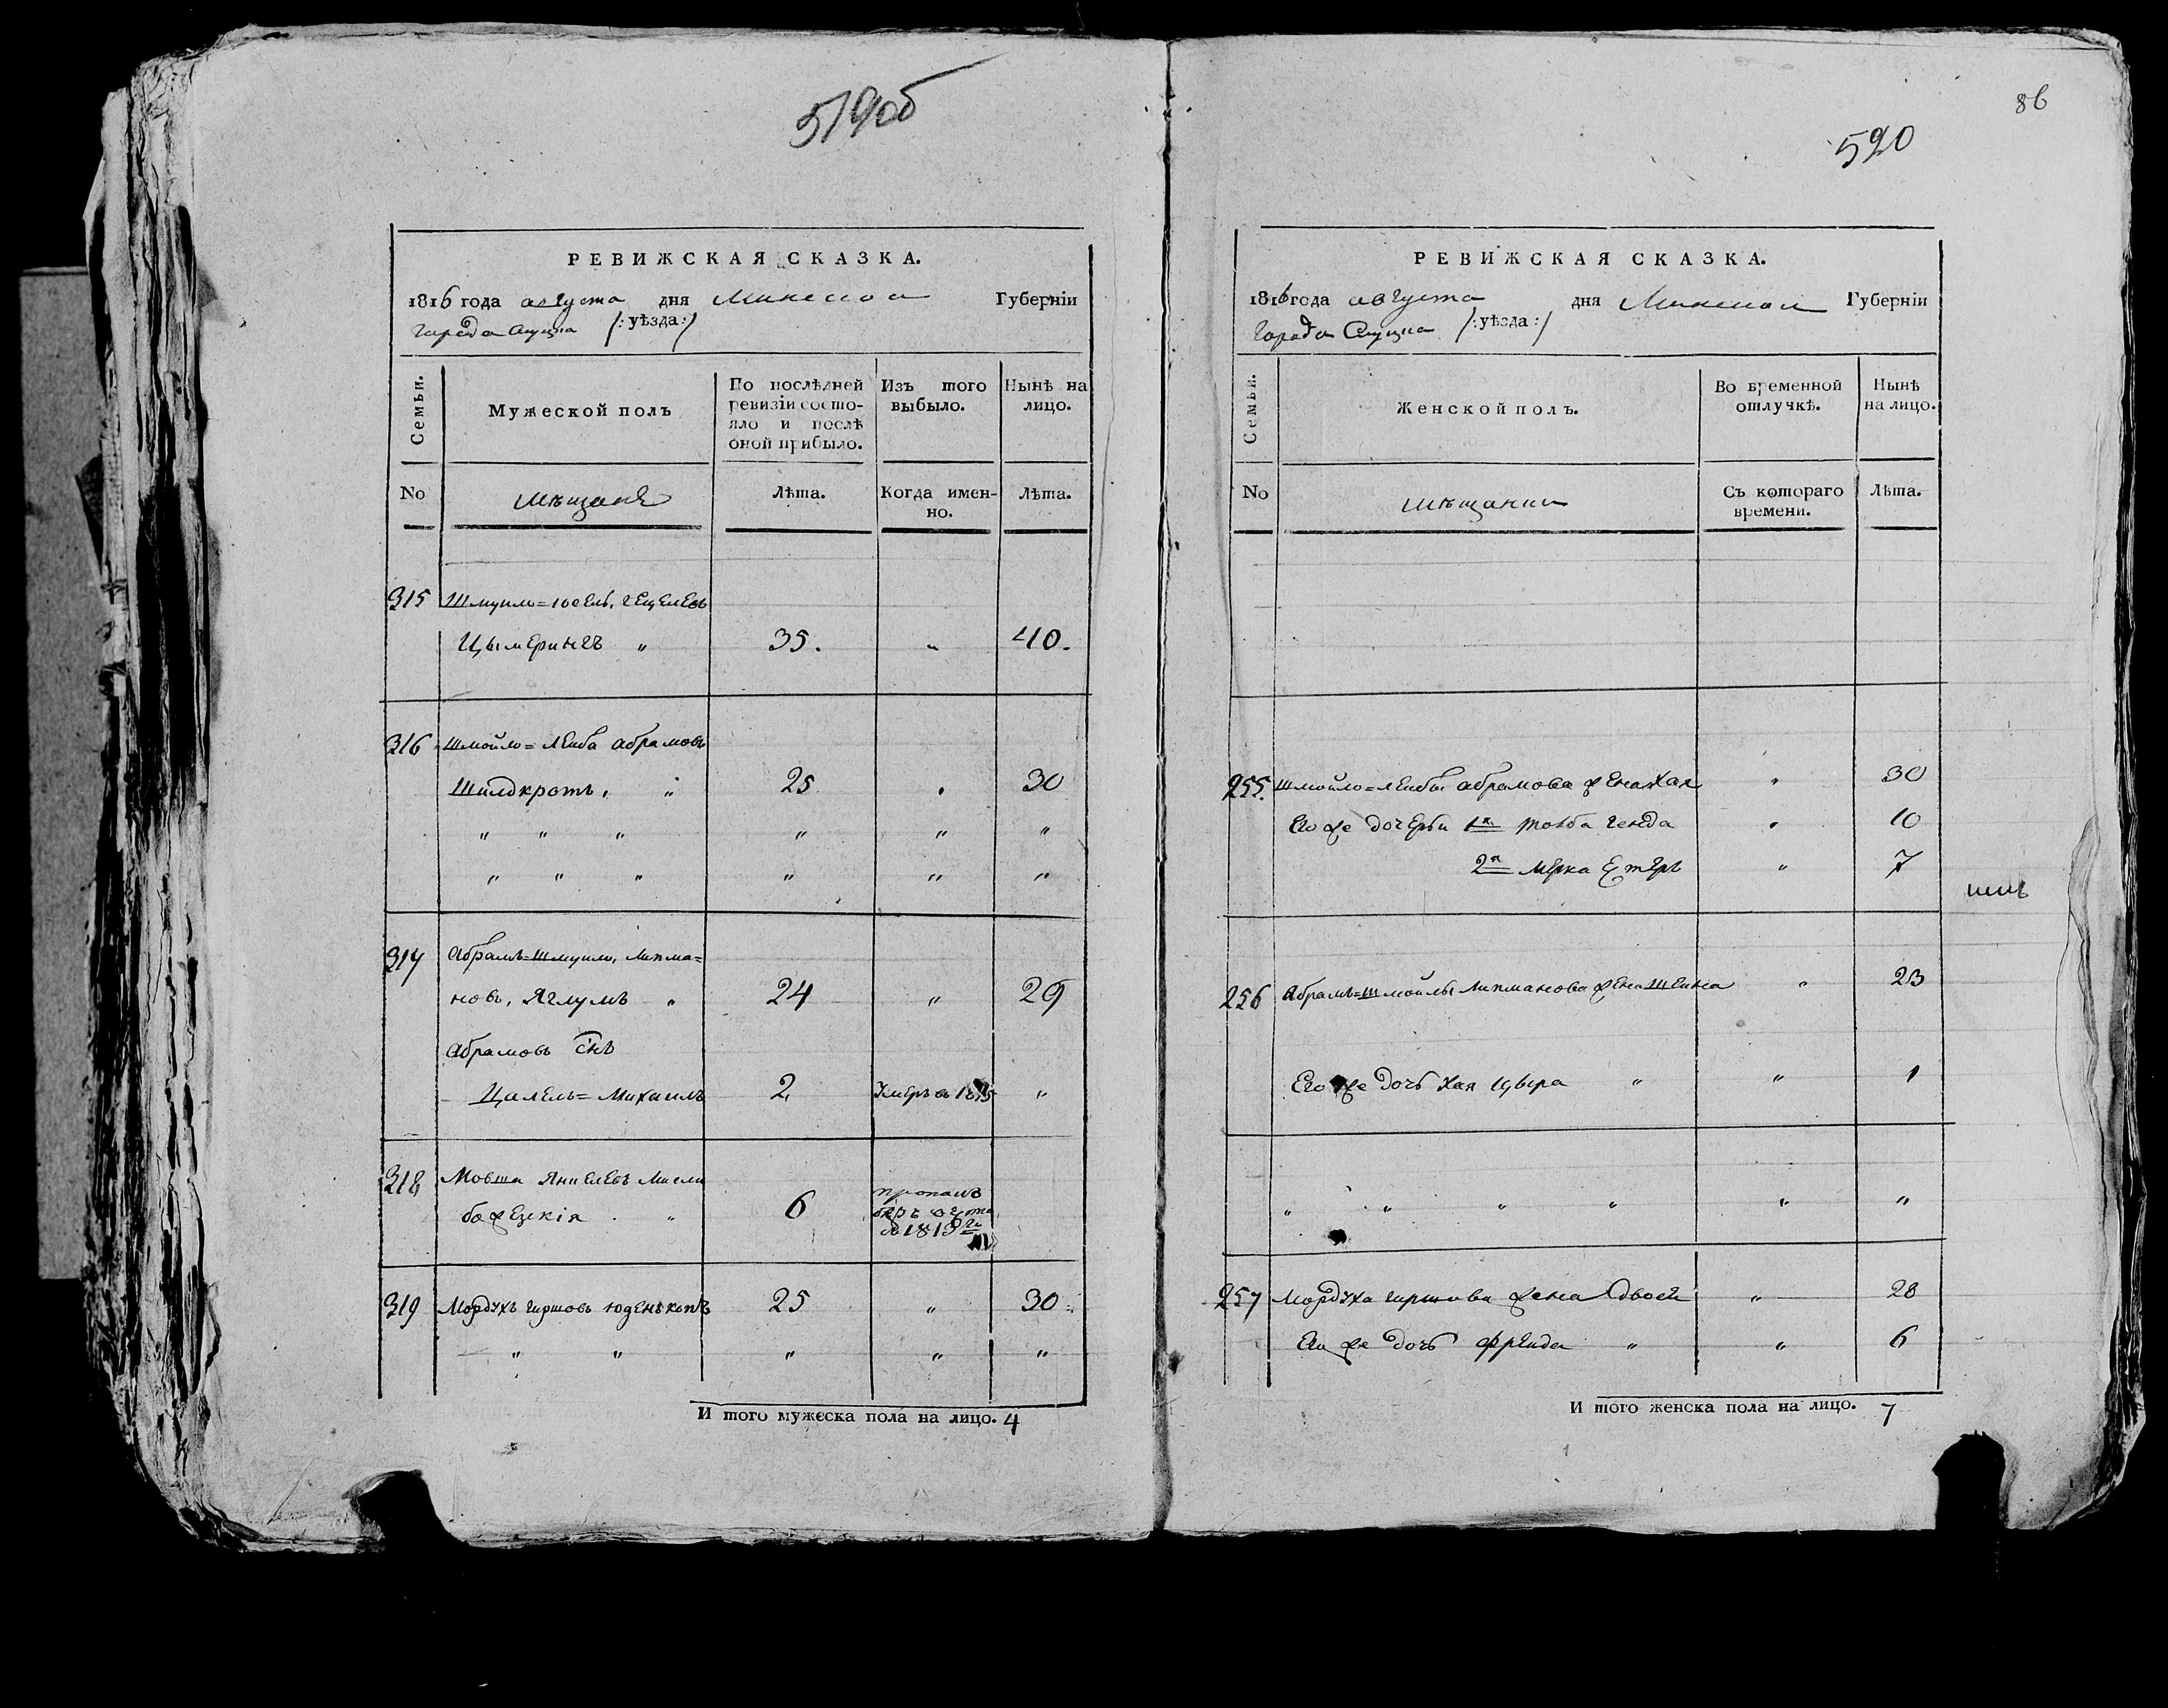 519об
РЕВИЖСКАЯ СКАЗКА.
1816 года августа дня Минской Губерніи
города Слуцка /: уѣзда :/
Семьи.
Мужеской полъ
По послѣдней ревизіи состо-
яло и послѣ
оной прибыло.
Изъ того
выбыло.
Нынѣ на
лицо.
No
мѣщане
Лѣта.
Когда имен-
но.
Лѣта.
315 Шмуило=іосель, гецелевъ
Цымерингъ " 35. " 40.
316 Шмойло=Лейба абрамовъ
Шилдкротъ, " 25 " 30
" " " " " "
" " " " " "
317 Абрамъ=Шмуило, Липма=
новъ, Яглумъ " 24 " 29
Абрамовъ снъ
Цалель=Михаилъ 2 Умеръ в 1815 "
318 Мовша Янкелевъ
6 пропалъ
319 Мордухъ гиршовъ 25 " 30
" " " " "
И того мужеска пола на лицо. 4
86
520
РЕВИЖСКАЯ СКАЗКА.
1816 года августа дня Минской Губерніи
города Слуцка /: уѣзда :/
Семьи.
Женской полъ.
Во временной
отлучкѣ.
Нынѣ
на лицо.
No
мѣщанки
Съ котораго
времени.
Лѣта.
255. Шмойло=лейбы абрамова жена хая " 30
Его же дочери 1я тойба генда " 10
2я мерка Етеръ " 7
256 Абрамъ=Шмойлы липманова жена Шейна " 23
Его же дочь хая цвыра " " 1
" " " " " "
257 Мордуха гиршова жена двося " 28
Его же дочь фрейда " " 6
И того женска пола на лицо. 7